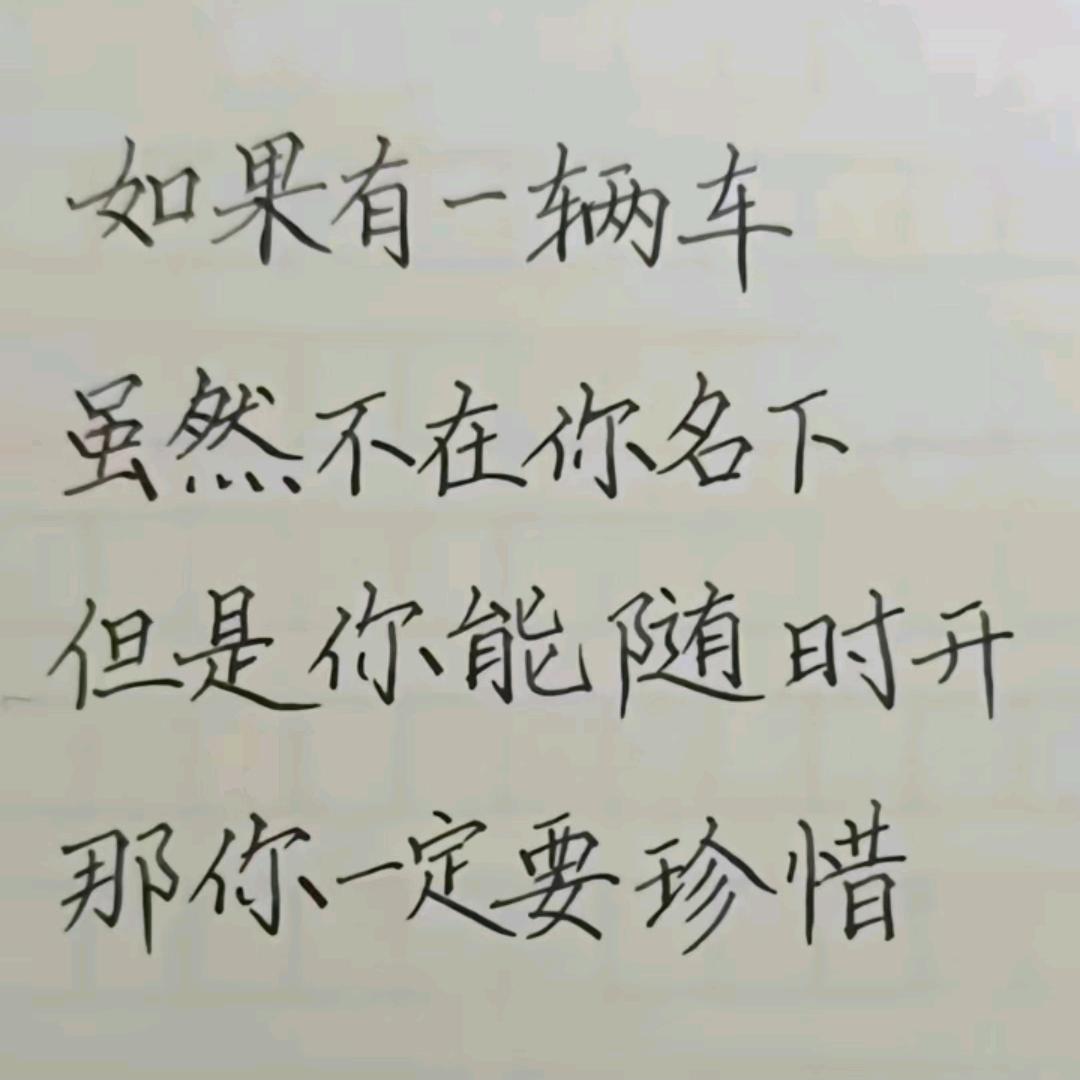 如果有一辆车
虽然不在你名下
但是你能随时开
那你一定要珍惜